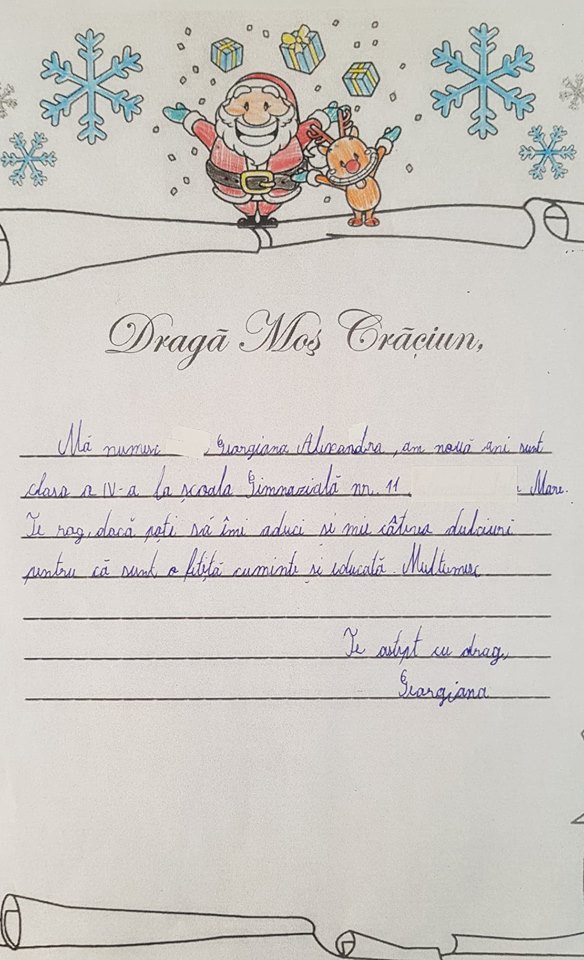 Dragă Moş Crăciun,
Mă numesc , Georgiana Alexandra, am nouă ani sunt
clasa a IV-a la școala Gimnazială nr. 11, Mare.
Te rog, dacă poți să îmi aduci și mie câteva dulciuri
pentru că sunt o fetiță cuminte și educată. Multumesc
Te astept cu drag,
Georgiana